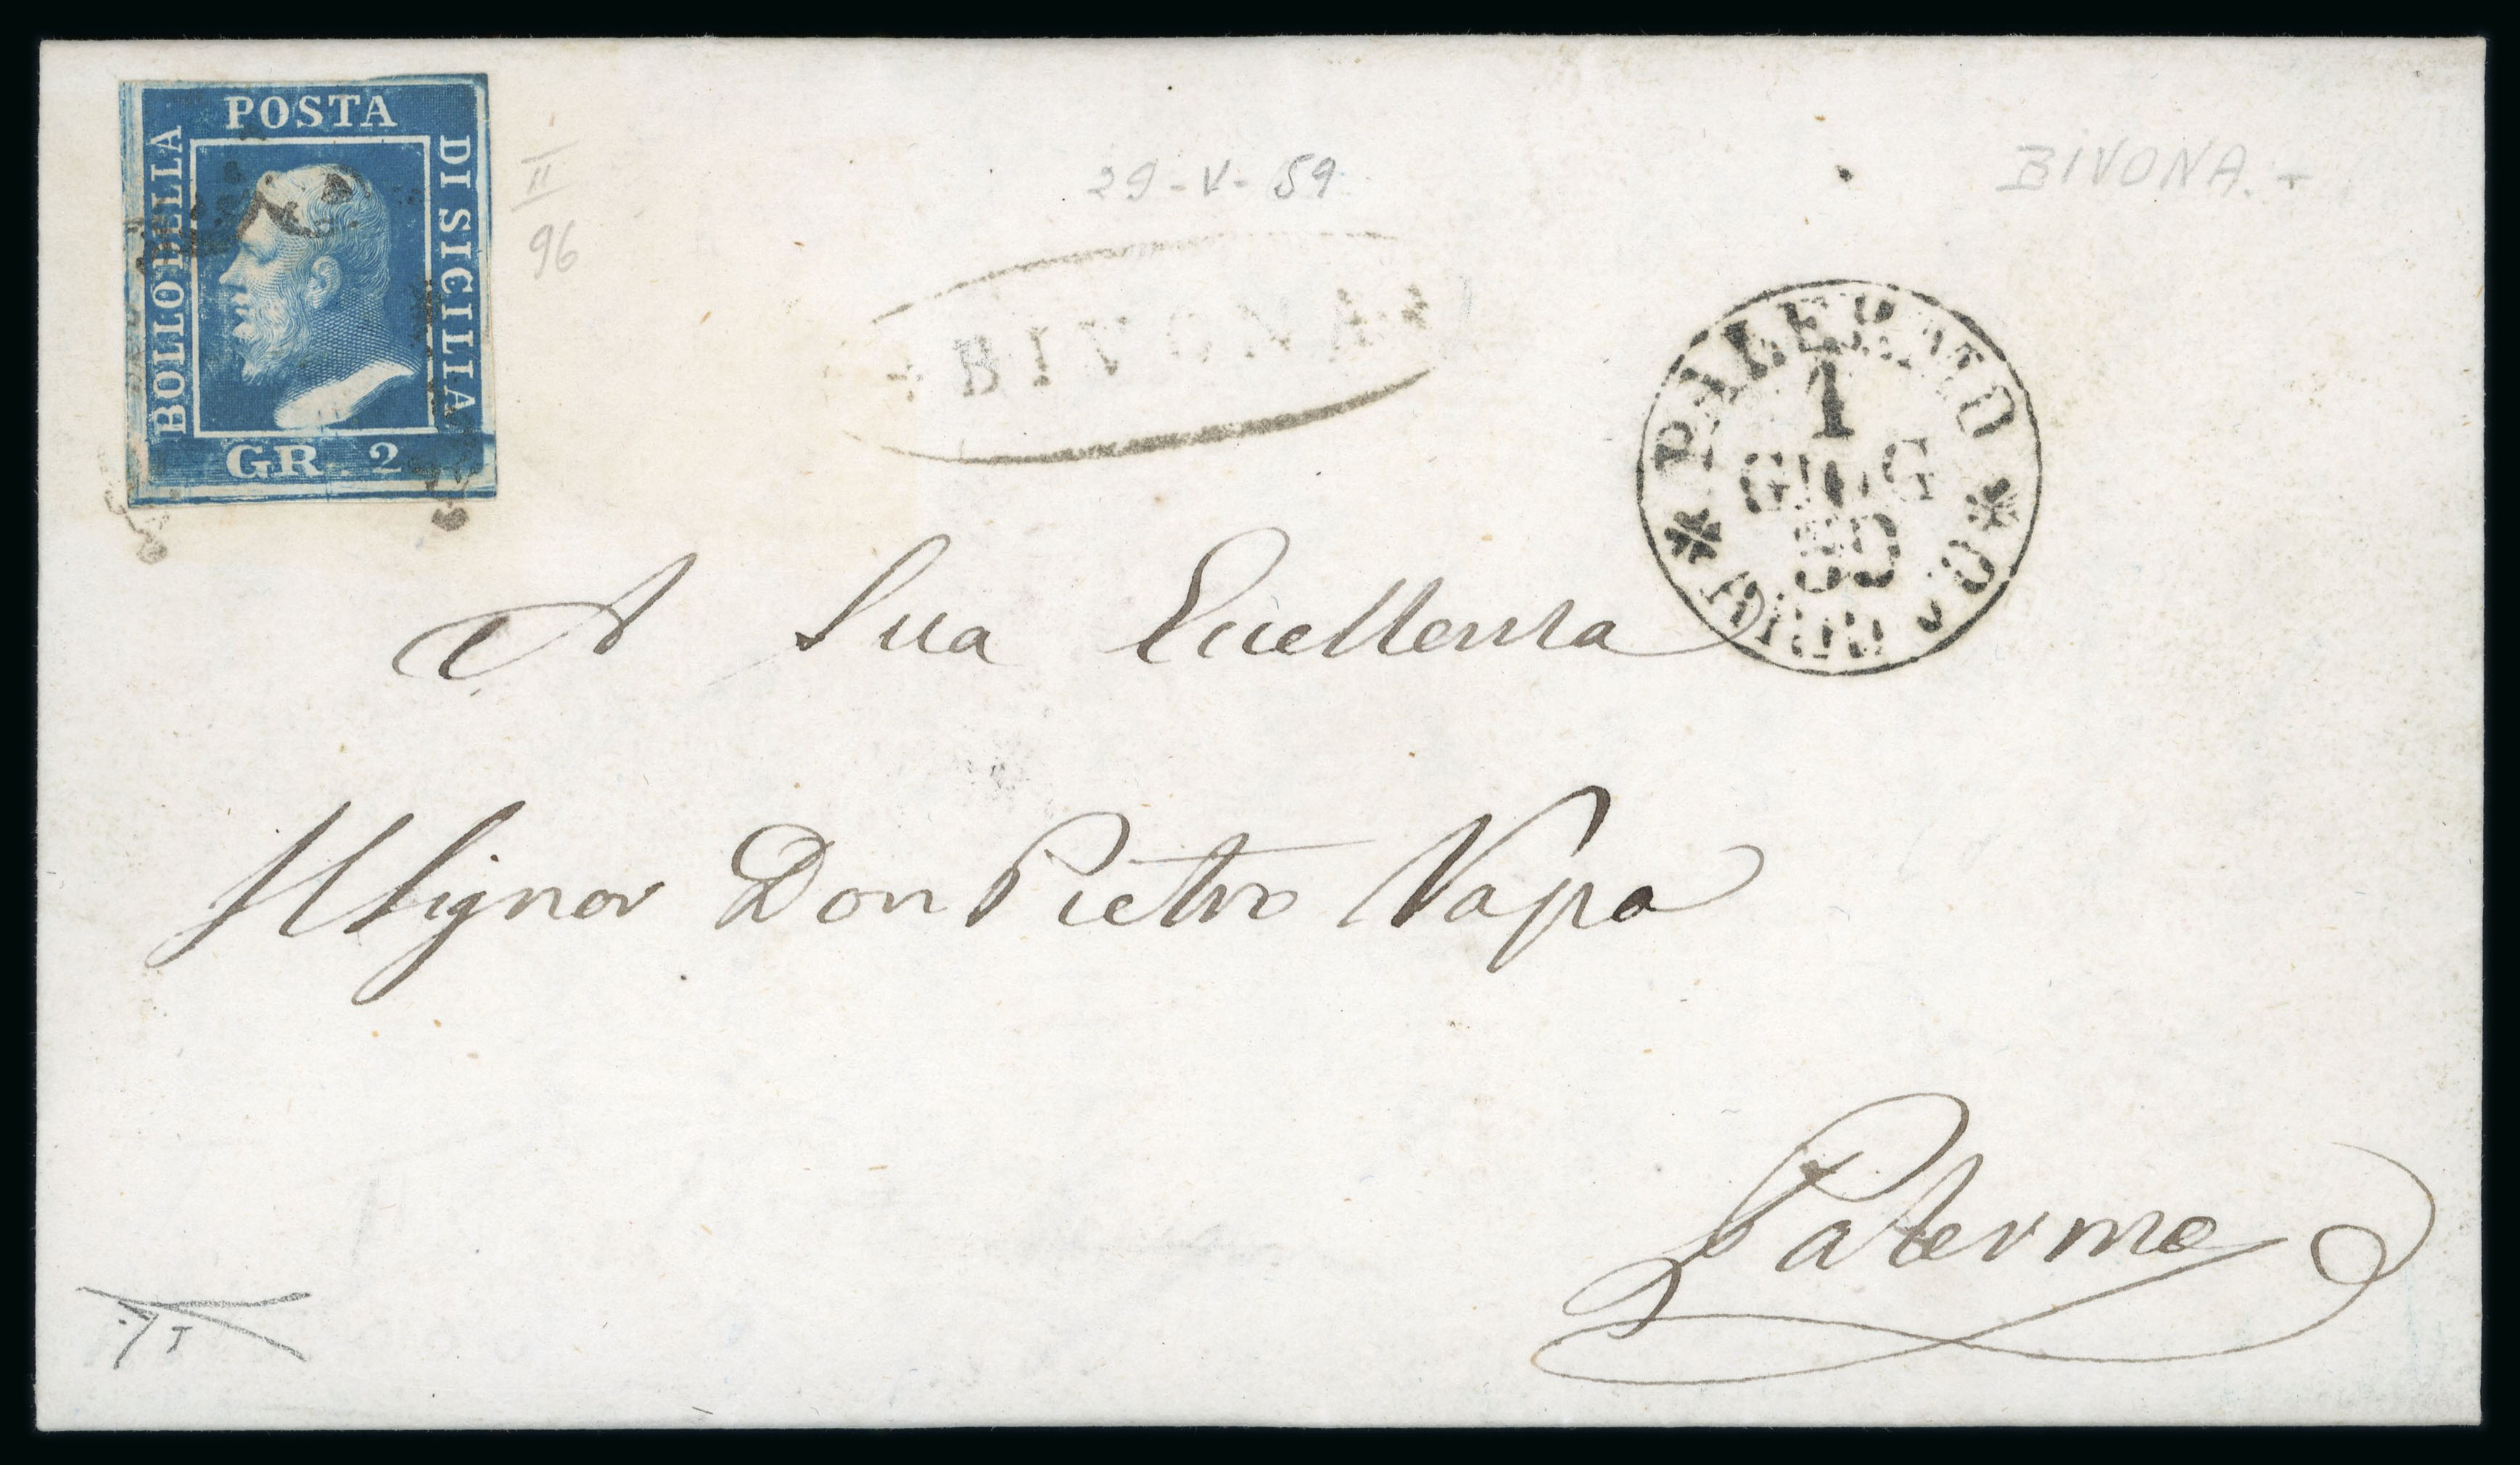 POSTA
BOLLO DELLA
DI SICILIA
GR. 2
II
96
29-V-59
BIVONA.
BIVONA
PALERMO
1
GIUG
ARRIVO
A Sua Eccellenza
Il Signor Don Pietro Vapa
Palermo